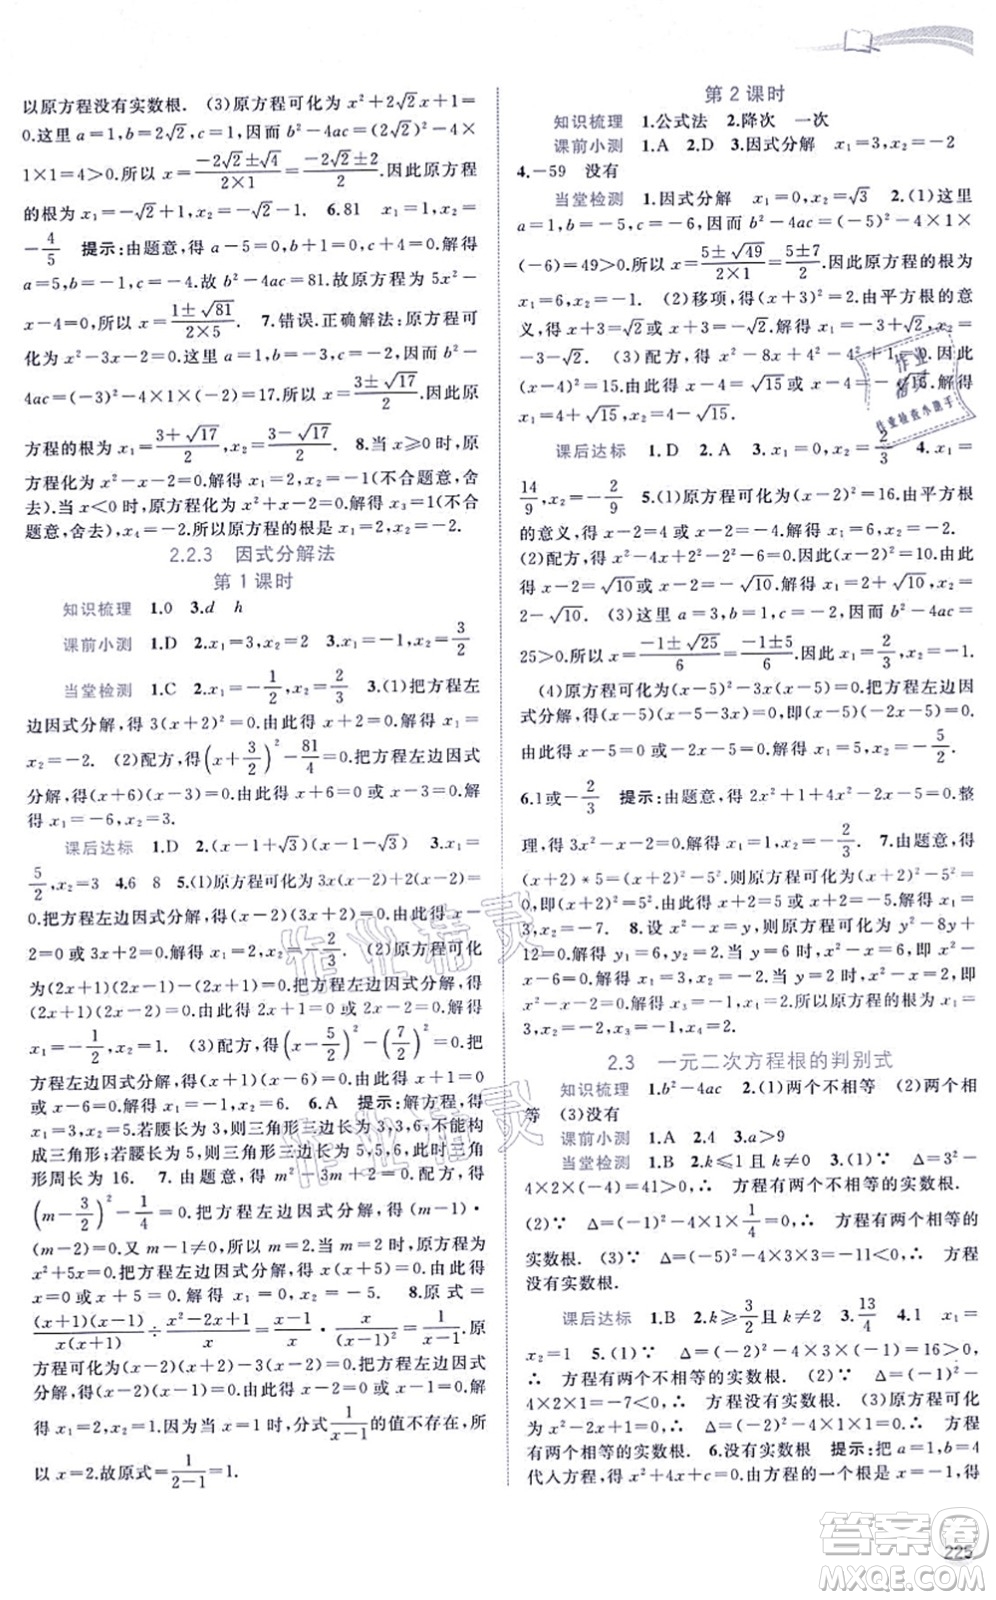 以原方程没有实数根. (3)原方程可化为 x²+2√2x+1=
0.这里 a=1,b=2√2,c=1.因而 b²-4ac=(2√2)²-4×
1×1=4>0.所以 x=(-2√2±√4)/(2×1)=(-2√2±2)/2.因此原方程
的根为 x₁=-√2+1,x₂=-√2-1. 6.81 x₁=1,x₂=
-4/5 提示:由题意,得 a-5=0,b+1=0,c+4=0.解得
a=5,b=-1,c=-4.故 b²-4ac=81.故原方程为 5x²-
x-4=0,所以 x=(1±√81)/(2×5). 7.错误.正确解法:原方程可
化为 x²-3x-2=0.这里 a=1,b=-3,c=-2.因而 b²-
4ac=(-3)²-4×1×(-2)=17.所以 x=(3±√17)/2.因此原
方程的根为 x₁=(3+√17)/2,x₂=(3-√17)/2. 8.当 x≥0 时,原
方程化为 x²-x-2=0.解得 x₁=2,x₂=-1(不合题意,舍
去).当 x<0 时,原方程化为 x²+x-2=0.解得 x₃=1(不合
题意,舍去),x₄=-2.所以原方程的根是 x₁=2,x₂=-2.
2.2.3 因式分解法
第 1 课时
知识梳理 1.0 3.d h
课前小测 1.D 2.x₁=3,x₂=2 3.x₁=-1,x₂=3/2
当堂检测 1.C 2.x₁=-1/2,x₂=2/3 3.(1)把方程左
边因式分解,得 3(x+2)²=0.由此得 x+2=0.解得 x₁=
x₂=-2. (2)配方,得(x+3/2)²-81/4=0.把方程左边因式
分解,得(x+6)(x-3)=0.由此得 x+6=0 或 x-3=0.
解得 x₁=-6,x₂=3.
课后达标 1.D 2.(x-1+√3)(x-1-√3) 3.x₁=
5/2,x₂=3 4.6 8 5.(1)原方程可化为 3x(x-2)+2(x-2)
=0.把方程左边因式分解,得(x-2)(3x+2)=0.由此得 x-
2=0 或 3x+2=0.解得 x₁=2,x₂=-2/3. (2)原方程可化
为(2x+1)(2x-1)-(2x+1)=0.把方程左边因式分解,得
(2x+1)(2x-2)=0.由此得 2x+1=0 或 2x-2=0.解得
x₁=-1/2,x₂=1. (3)配方,得(x-5/2)²-(7/2)²=0.把
方程左边因式分解,得(x-6)(x+1)=0.由此得 x-6=0
或 x+1=0.解得 x₁=6,x₂=-1. 6.A 提示:解方程,得
x₁=3,x₂=5.若腰长为 3,则三角形边长为 3,3,6,不能构
成三角形;若腰长为 5,则三角形边长为 5,5,6,此时三角
形周长为 16. 7.由题意,得 m²-3m+2=0.配方,得
(m-3/2)²-1/4=0.把方程左边因式分解,得(m-1)·
(m-2)=0.又 m-1≠0,所以 m=2.当 m=2 时,原方程为
x²+5x=0.把方程左边因式分解,得 x(x+5)=0.由此得
x=0 或 x+5=0.解得 x₁=0,x₂=-5. 8.原式=
(x+1)(x-1)/x(x+1)÷(x²-2x+1)/x=(x-1)/x·x/(x-1)²=1/(x-1).原
方程可化为(x-1)(x-2)=0.由此得 x-1=0 或 x-2=0.
解得 x₁=1,x₂=2.因为当 x=1 时,分式1/(x-1)的值不存在,所
以 x=2.故原式=1/(2-1)=1.
第 2 课时
知识梳理 1.公式法 2.降次 一次
课前小测 1.A 2.D 3.因式分解 x₁=3,x₂=-2
4.-59 没有
当堂检测 1.因式分解 x₁=1,x₂=0 2.(1)这里
a=1,b=-5,c=-6,因而 b²-4ac=(-5)²-4×1×
(-6)=49>0.所以 x=(5±√49)/(2×1)=(5±7)/2.因此原方程的根为
x₁=6,x₂=-1. (2)移项,得(x+3)²=2.由平方根的意
义,得 x+3=√2或 x+3=-√2.解得 x₁=-3+√2,x₂=
-3-√2. (3)配方,得 x²-8x+4²-4²+1=0.因此
(x-4)²=15.由此得 x-4=√15或 x-4=-√15.解得
x₁=4+√15,x₂=4-√15.
课后达标 1.D 2.A 3.x₁=0,x₂=2/3 4.x₁=
14/9,x₂=-2/9 5.(1)原方程可化为(x-2)²=16.由平方根
的意义,得 x-2=4 或 x-2=-4.解得 x₁=6,x₂=-2.
(2)配方,得 x²-4x+2²-2²-6=0.因此(x-2)²=10.由
此得 x-2=√10或 x-2=-√10.解得 x₁=2+√10,x₂=
2-√10. (3)这里 a=3,b=1,c=-2.因而 b²-4ac=
25>0.所以 x=(-1±√25)/6=(-1±5)/6.由此得 x₁=2/3,x₂=-1.
(4)原方程可化为(x-5)²-3x(x-5)=0.把方程左边因
式分解,得(x-5)(x-5-3x)=0,即(x-5)(-2x-5)=0.
由此得 x-5=0 或-2x-5=0.解得 x₁=5,x₂=-5/2.
6.1或-2/3 提示:由题意,得 2x²+1+4x²-2x-5=0.整
理,得 3x²-x-2=0.解得 x₁=1,x₂=-2/3. 7.由题意,得
(x+2)*5=(x+2)²-5².则原方程化为(x+2)²-5²
=0,即(x+7)(x-3)=0.由此得 x+7=0 或 x-3=0.解得
x₁=3,x₂=-7. 8.设 x²-x=y,则原方程化为 y²-8y+
12=0.解得 y₁=6,y₂=2.由此得 x²-x=6 或 x²-x=2,即
x²-x-6=0 或 x²-x-2=0.由 x²-x-6=0,解得 x₁=3,
x₂=-2.由 x²-x-2=0,解得 x₃=-1,x₄=2.所以原方程的根为 x₁=
3,x₂=-2,x₃=-1,x₄=2.
2.3 一元二次方程根的判别式
知识梳理 1.b²-4ac 2.(1)两个不相等 (2)两个相
等 (3)没有
课前小测 1.A 2.4 3.a>9
当堂检测 1.B 2.k≤1且k≠0 3.(1)∵ Δ=3²-
4×2×(-4)=41>0,∴ 方程有两个不相等的实数根.
(2)∵ Δ=(-1)²-4×1×1/4=0,∴ 方程有两个相等的
实数根. (3)∵ Δ=(-5)²-4×3×3=-11<0,∴ 方程
没有实数根.
课后达标 1.B 2.k≥3/2 3.13/4 4.1 x₁=
x₂=1 5.(1)∵ Δ=(-2)²-4×3×(-1)=16>0,
∴ 方程有两个不相等的实数根. (2)∵ Δ=(-1)²-
4×2×2=-15<0,∴ 方程没有实数根. (3)原方程可化
为 x²-2x+1=0.∵ Δ=(-2)²-4×1×1=0,∴ 方程
有两个相等的实数根. 6.没有实数根 提示:把 a=1,b=4
代入方程,得 x²+4x+c=0.由方程的一个根是 x=-1,得
225
作业精灵
作业检查小能手
答案圈
MXQE.COM